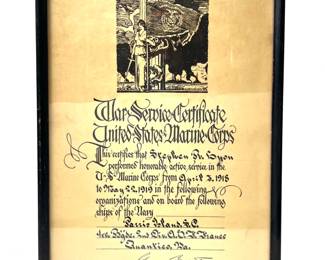 War Service Certificate
United States Marine Corps
This certifies that Stephen R. Lyon
performed honorable active service in the
U.S. Marine Corps from April 3, 1918
to May 22, 1919 in the following
organizations and on board the following
ships of the Navy
Parris Island, S.C.
Quantico, Va.